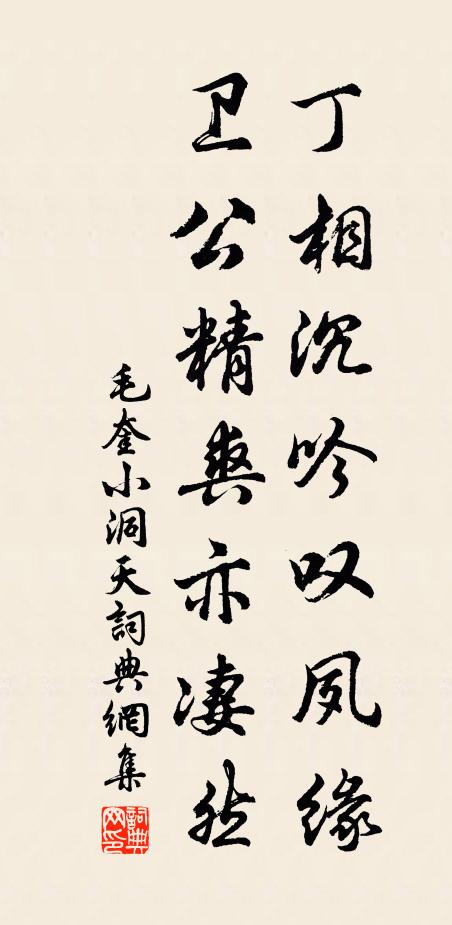 丁相沉吟叹夙缘
卫公精爽亦凄然
毛奎小洞天詞典網集
詞典網印